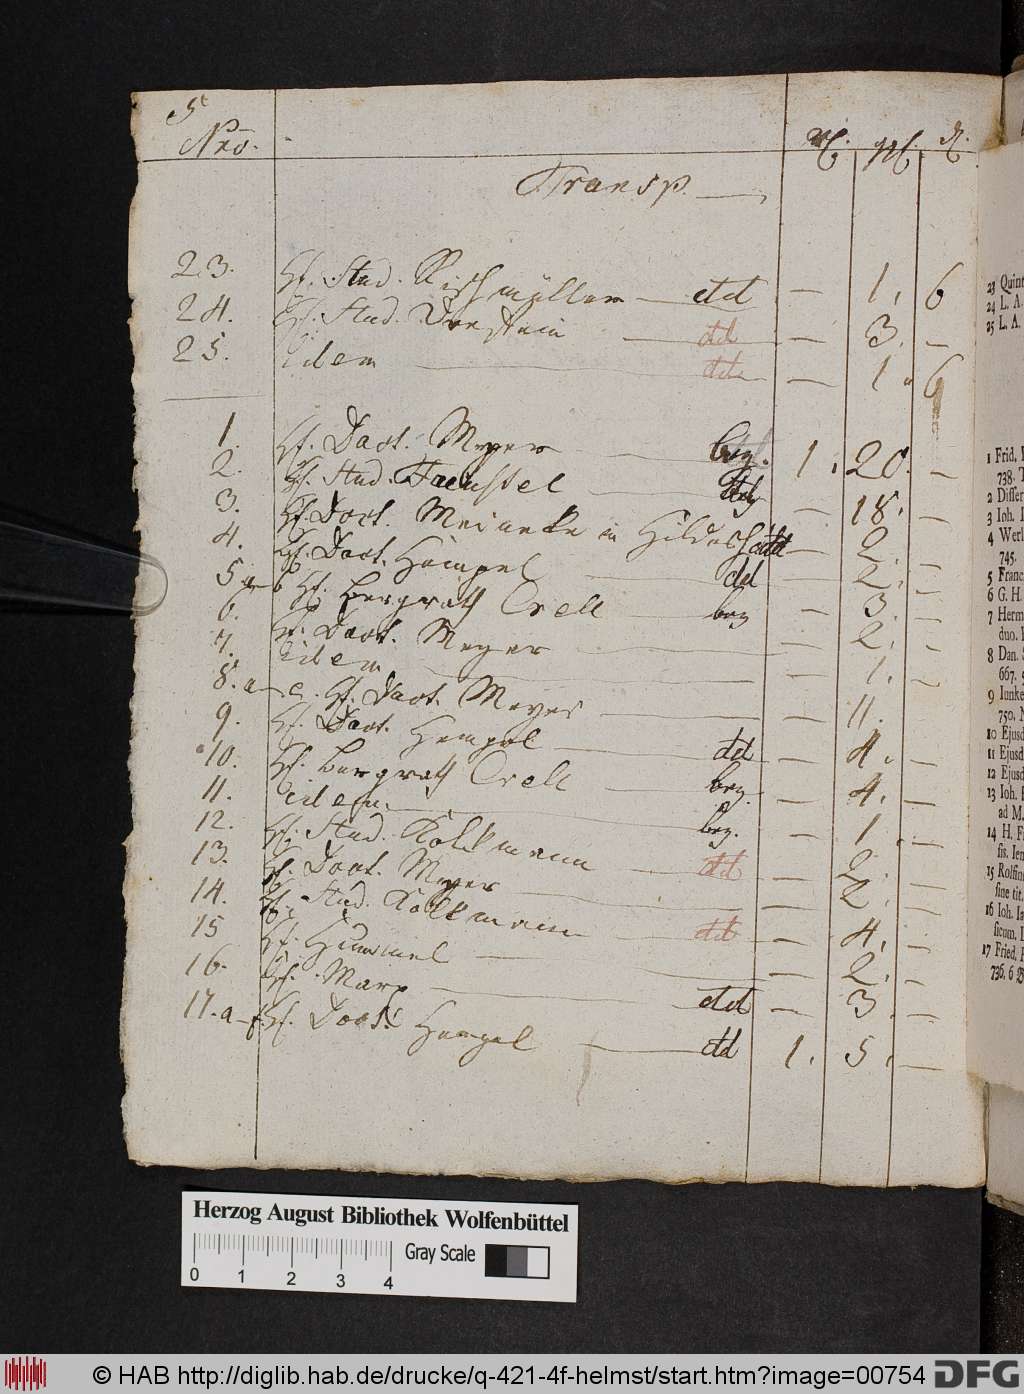 5
Nro.
Transp.
23. Hf. Stud. Rischmüller dd — 1. 6
24. Hf. Stud. Dorstein dd — 3. —
25. Idem dd — 1. 6
1. Hf. Doct. Meyer bez. 1. 20. —
2. Hf. Stud. bez — 18. —
3. Hf. Doct. Meineke in Hildesh. dd — 2. —
4. Hf. Doct. Hempel dd — 2. —
5 a-b Hf. Bergrath Crell bez — 3. —
6. Hf. Doct. Meyer — 2. —
7. Idem — 1. —
8. a-e. Hf. Doct. Meyer — 11. —
9. Hf. Doct. Hempel dd — 4. —
10. Hf. Bergrath Crell bez. — 4. —
11. Idem. bez. — 1. —
12. Hf. Stud. Kollmann dd — 2. —
13. Hf. Doct. Meyer — 2. —
14. Hf. Stud. Kollmann dd — 4. —
15 Hf. Hummel — 2. —
16. Hf. Marx dd — 3. —
17. a-f. Hf. Doct. Hempel dd 1. 5. —
23 Quin
24 L. A.
25 L. A.
1 Frid.
738.
2 Differ
3 Ioh.
4 Werl
745.
5 Franc
6 G. H.
7 Herm
duo.
8 Dan.
667.
9 Iunke
750.
10 Ejusd
11 Ejusd
12 Ejusd
13 Ioh.
ad M.
14 H. F
sis. Ien
15 Rolfin
sine tit.
16 Ioh. Ia
sicum.
17 Fried.
736. 6
Herzog August Bibliothek Wolfenbüttel
Gray Scale
0 1 2 3 4
© HAB http://diglib.hab.de/drucke/q-421-4f-helmst/start.htm?image=00754 DFG